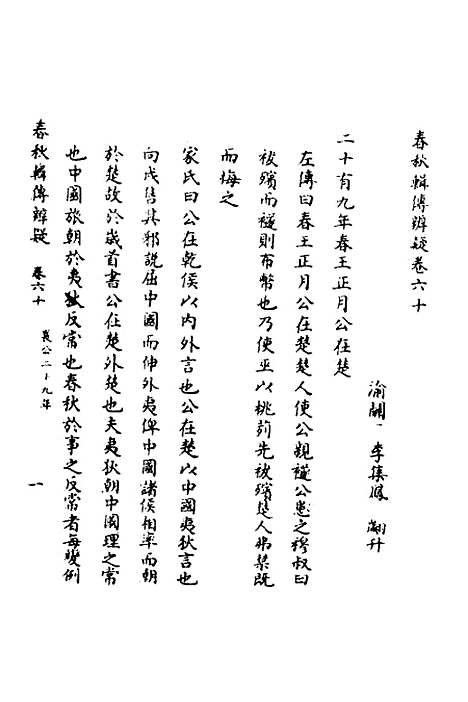 春秋輯傳辨疑卷六十
渝關 李集鳳 翽升
二十有九年春王正月公在楚
左傳曰春王正月公在楚楚人使公親襚公患之穆叔曰
祓殯而襚則布幣也乃使巫以桃茢先祓殯楚人弗禁既
而悔之
家氏曰公在乾侯以内外言也公在楚以中國夷狄言也
向戌售其邪說屈中國而伸外夷俾中國諸侯相率而朝
於楚故於歲首書公在楚外楚也夫夷狄朝中國理之常
也中國旅朝於夷狄反常也春秋於事之反常者每變例
春秋輯傳辨疑 卷六十 襄公二十九年 一